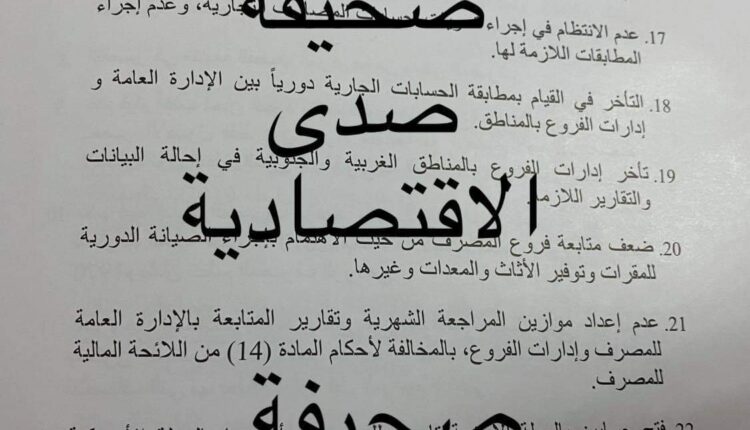 صحيفة
17. عدم الانتظام في إجراء حسابات الجارية، وعدم إجراء
المطابقات اللازمة لها.
18. التأخر في القيام بمطابقة الحسابات الجارية دورياً بين الإدارة العامة و
إدارات الفروع بالمناطق.
صدى
19. تأخر إدارات الفروع بالمناطق الغربية والجنوبية في إحالة البيانات
والتقارير اللازمة.
الاقتصادية
20. ضعف متابعة فروع المصرف من حيث الاهتمام بإجراء الصيانة الدورية
للمقرات وتوفير الأثاث والمعدات وغيرها.
21. عدم إعداد موازين المراجعة الشهرية وتقارير المتابعة بالإدارة العامة
للمصرف وإدارات الفروع، بالمخالفة لأحكام المادة (14) من اللائحة المالية
للمصرف.
صحيفة
22. فتح